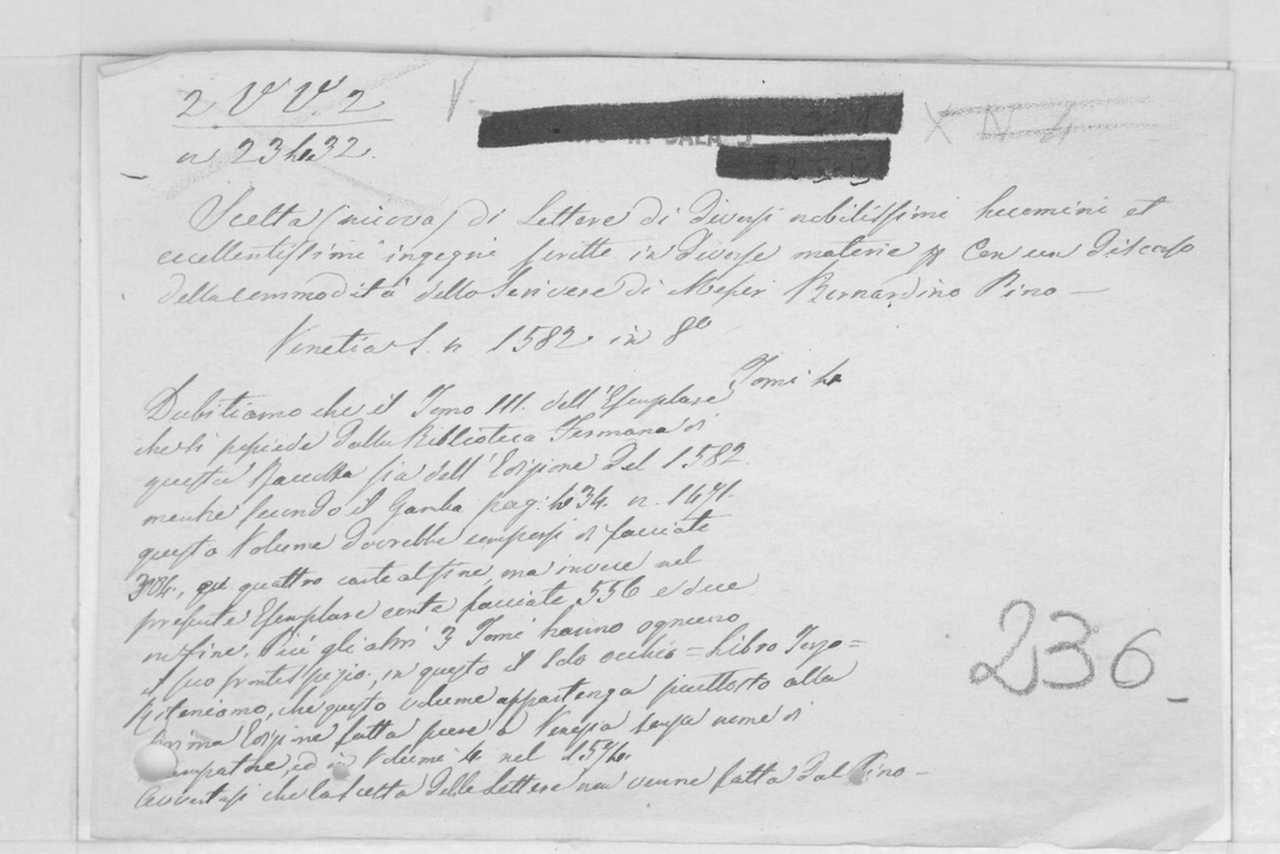 2 V V. 2
n 23432.
X N 4
Scelta (nuova) di Lettere di diversi nobilissimi huomini et
eccellentissimi ingegni scritte in diverse materie Con un Discorso
della commodità dello Scrivere di Messer Bernardino Pino —
Venetia S. n 1582 in 8º
Tomi 4
Dubitiamo che il Tomo III. dell'Esemplare
che si possiede dalla Biblioteca Fermana di
questa Raccolta sia dell'Edizione del 1582.
mentre secondo il Gamba pag: 434. n. 1471.
questo Volume dovrebbe comporsi di facciate
quattro carte al fine, ma invece nel
presente Esemplare conta facciate 556 e due
in fine. Più gli altri 3 Tomi hanno ognuno
il suo frontespizio, in questo il solo occhio = Libro Terzo =
Riteniamo, che questo volume appartenga piuttosto alla
prima Edizione fatta pure a Venezia senza nome di
Stampatore, ed in Volumi 4. nel 1574.
Avvertasi che la scelta delle Lettere non venne fatta dal Pino —
236